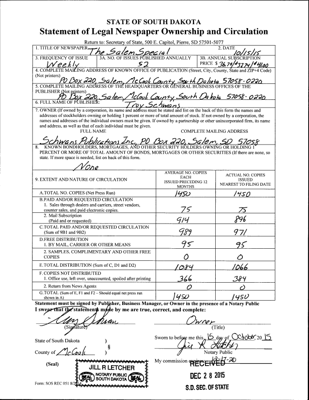 STATE OF SOUTH DAKOTA
Statement of Legal Newspaper Ownership and Circulation
Return to: Secretary of State, 500 E. Capitol, Pierre, SD 57501-5077
1. TITLE OF NEWSPAPER The Salem Special
2. DATE 10/15/15
3. FREQUENCY OF ISSUE Weekly
3A. NO. OF ISSUES PUBLISHED ANNUALLY 52
3B. ANNUAL SUBSCRIPTION PRICE
4. COMPLETE MAILING ADDRESS OF KNOWN OFFICE OF PUBLICATION (Street, City, County, State and ZIP+4 Code) (Not printers)
PO Box 220, Salem, McCook County, South Dakota 57058-0220
5. COMPLETE MAILING ADDRESS OF THE HEADQUARTERS OR GENERAL BUSINESS OFFICES OF THE PUBLISHER (Not printers)
PO Box 220, Salem, McCook County, South Dakota 57058-0220
6. FULL NAME OF PUBLISHER: Troy Schwans
7. OWNER (If owned by a corporation, its name and address must be stated and also the names and addresses of stockholders owning or holding 1 percent or more of total amount of stock. If not owned by a corporation, the names and addresses of the individual owners must be given. If owned by a partnership or other unincorporated firm, its name and address, as well as that of each individual must be given.
FULL NAME COMPLETE MAILING ADDRESS
Schwans Publications Inc, PO Box 220, Salem, SD 57058
8. KNOWN BONDHOLDERS, MORTGAGES, AND OTHER SECURITY HOLDERS OWNING OR HOLDING 1 PERCENT OR MORE OF TOTAL AMOUNT OF BONDS, MORTGAGES OR OTHER SECURITIES (If there are none, so state. If more space is needed, list on back of this form.
None
9. EXTENT AND NATURE OF CIRCULATION
AVERAGE NO. COPIES EACH ISSUED PRECEDING 12 MONTHS
ACTUAL NO. COPIES ISSUED NEAREST TO FILING DATE
A. TOTAL NO. COPIES (Net Press Run) 1450 1450
B. PAID AND/OR REQUESTED CIRCULATION
1. Sales through dealers and carriers, street vendors, counter sales, and paid electronic copies. 75 75
2. Mail Subscription (Paid and/or requested) 914 896
C. TOTAL PAID AND/OR REQUESTED CIRCULATION (Sum of 9B1 and 9B2) 989 971
D. FREE DISTRIBUTION
1. BY MAIL, CARRIER OR OTHER MEANS 95 95
2. SAMPLES, COMPLIMENTARY AND OTHER FREE COPIES 0 0
E. TOTAL DISTRIBUTION (Sum of C, D1 and D2) 1084 1066
F. COPIES NOT DISTRIBUTED
1. Office use, left over, unaccounted, spoiled after printing 366 384
2. Return from News Agents 0 0
G. TOTAL (Sum of E, F1 and F2 - Should equal net press run shown in A) 1450 1450
Statement must be signed by Publisher, Business Manager, or Owner in the presence of a Notary Public
I swear that the statements made by me are true, correct, and complete:
Troy Schwans Owner
(Signature) (Title)
State of South Dakota )
County of McCook )
Sworn to before me this 15 day of October 20 15
Notary Public
(Seal)
My commission
JILL R LETCHER
NOTARY PUBLIC
SOUTH DAKOTA
RECEIVED
DEC 28 2015
S.D. SEC. OF STATE